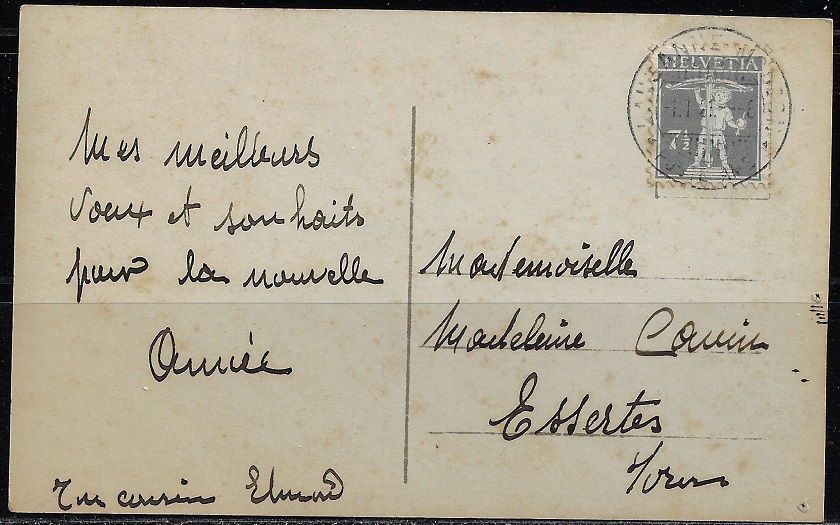 Mes meilleurs
voeux et souhaits
pour la nouvelle
Année
Ton cousin Edmond
HELVETIA
7½
Mademoiselle
Madeleine Cavin
Essertes